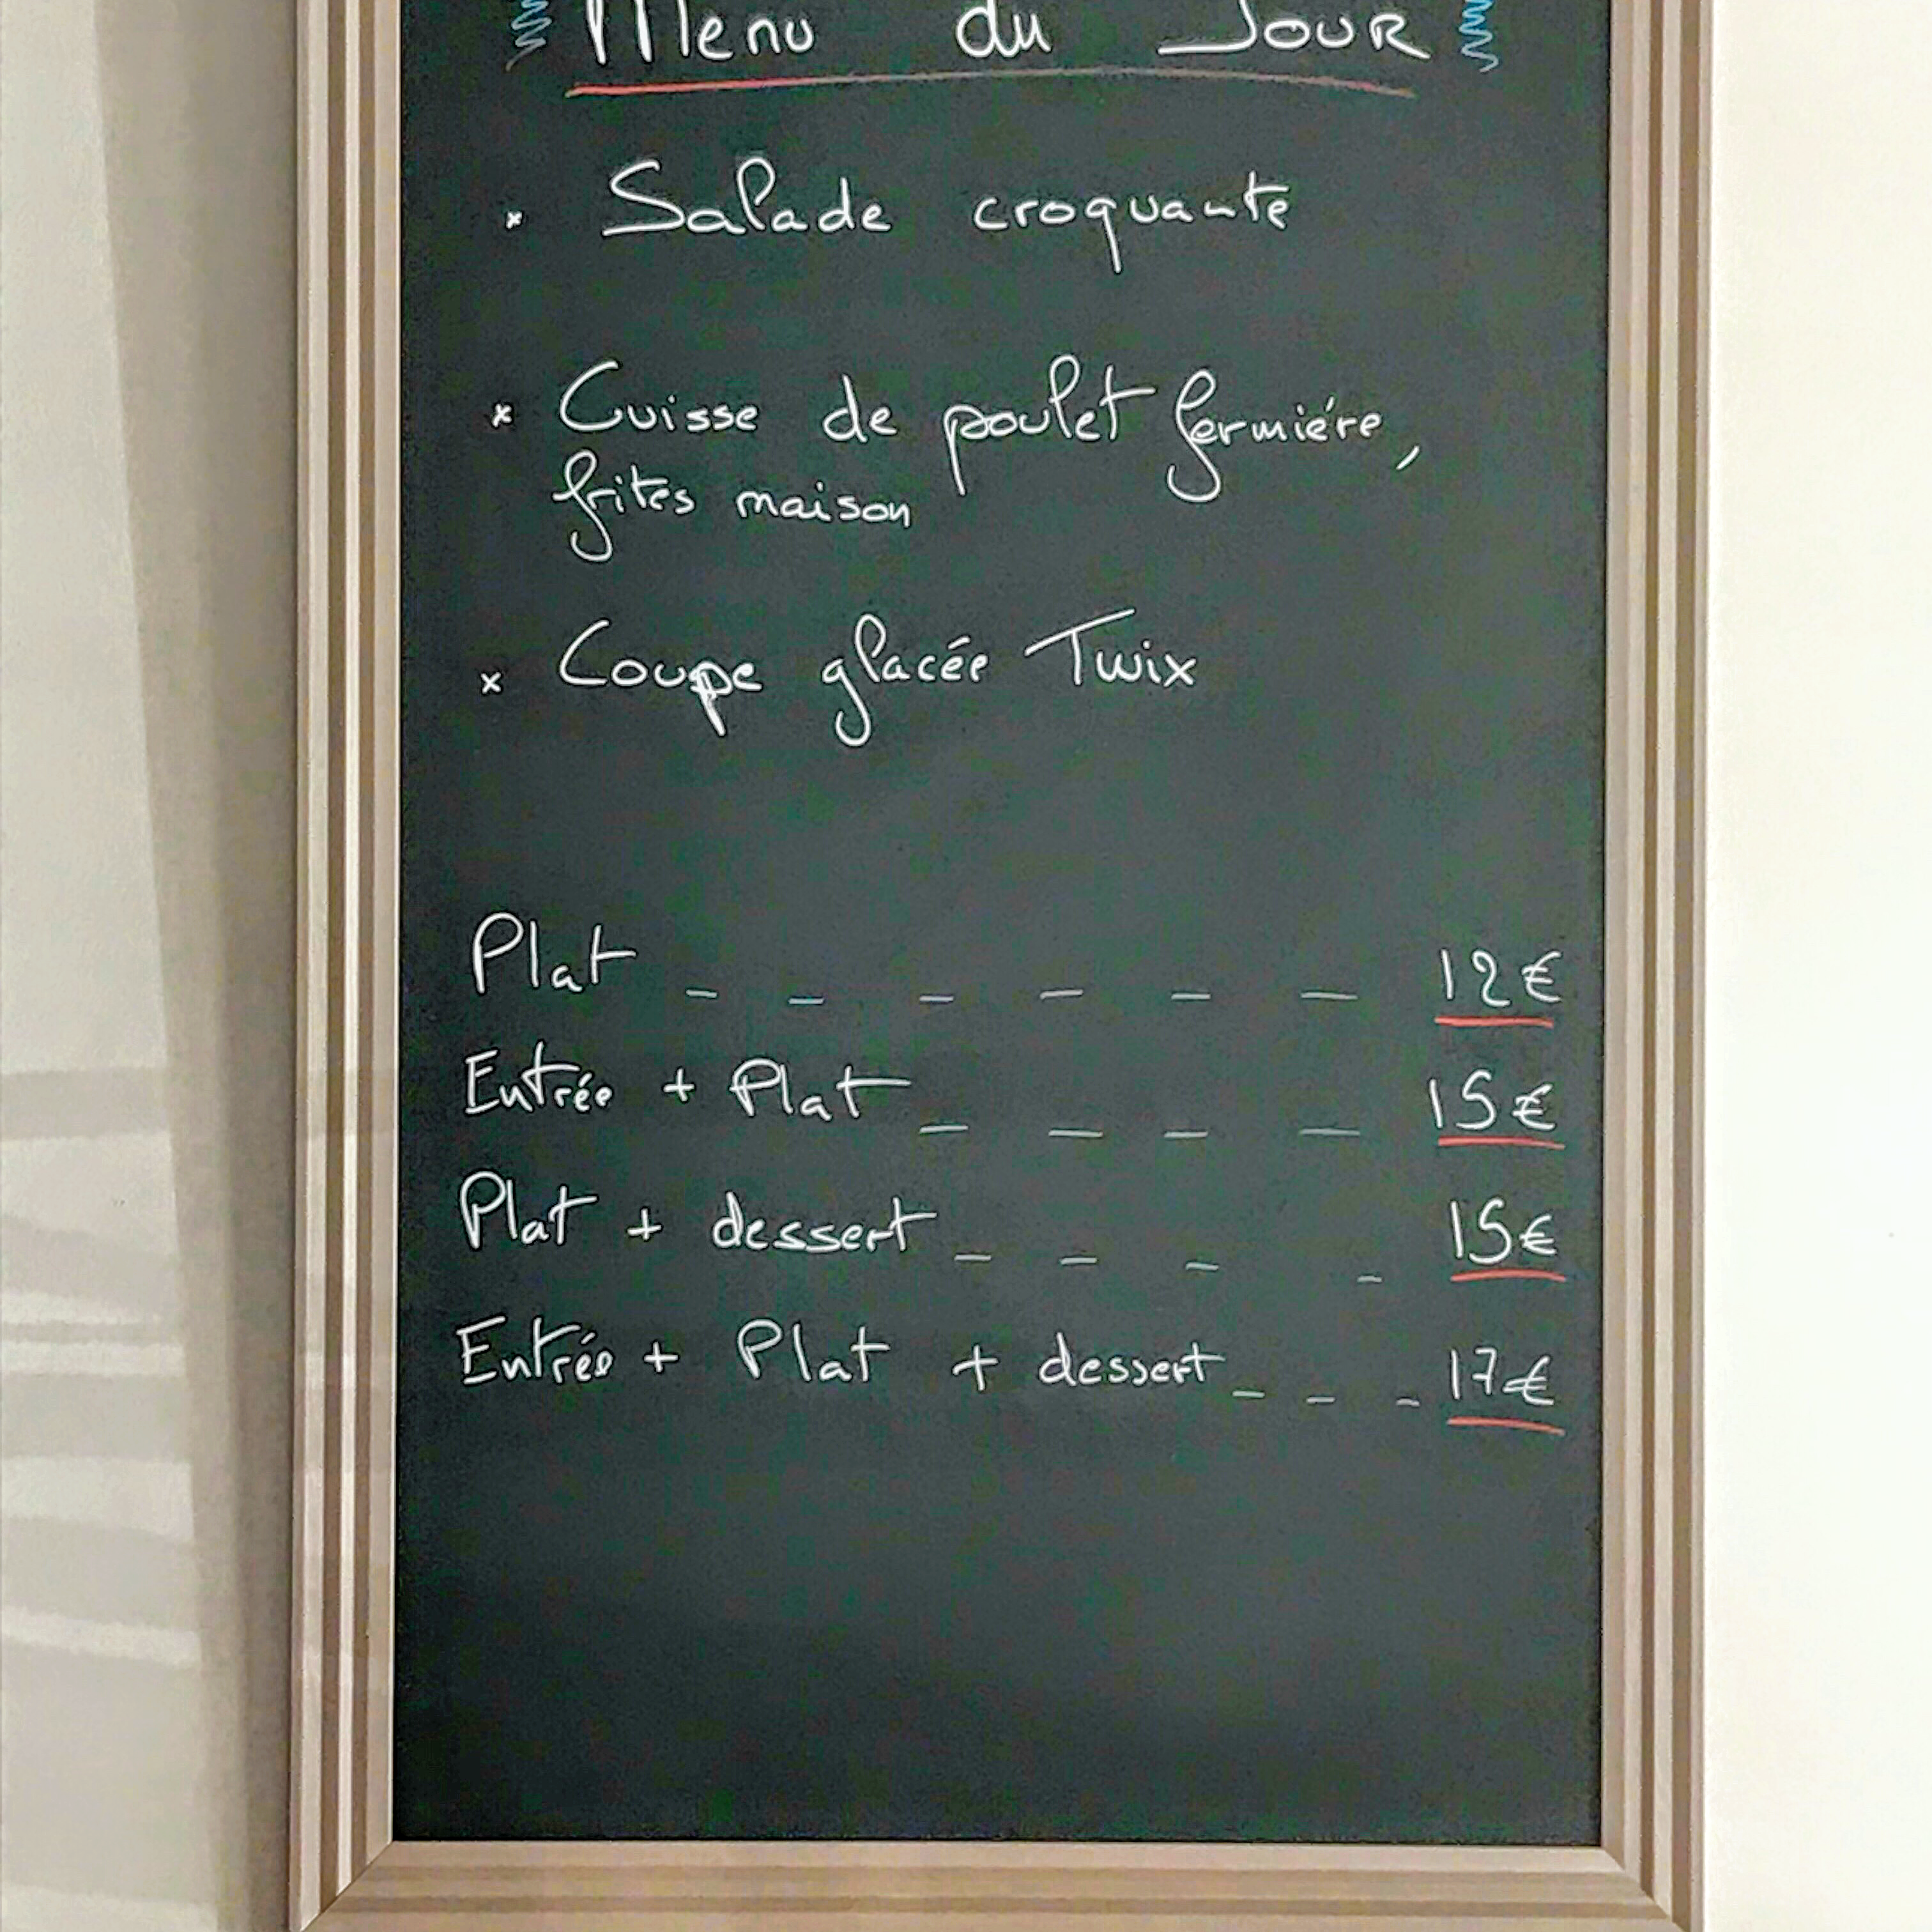 Menu du JOUR
* Salade croquante
* Cuisse de poulet fermiére,
frites maison
x Coupe glacée Twix
Plat _ _ _ _ _ _ 12€
Entrée + Plat _ _ _ _ 15€
Plat + dessert _ _ _ _ 15€
Entrée + Plat + dessert _ _ _ 17€